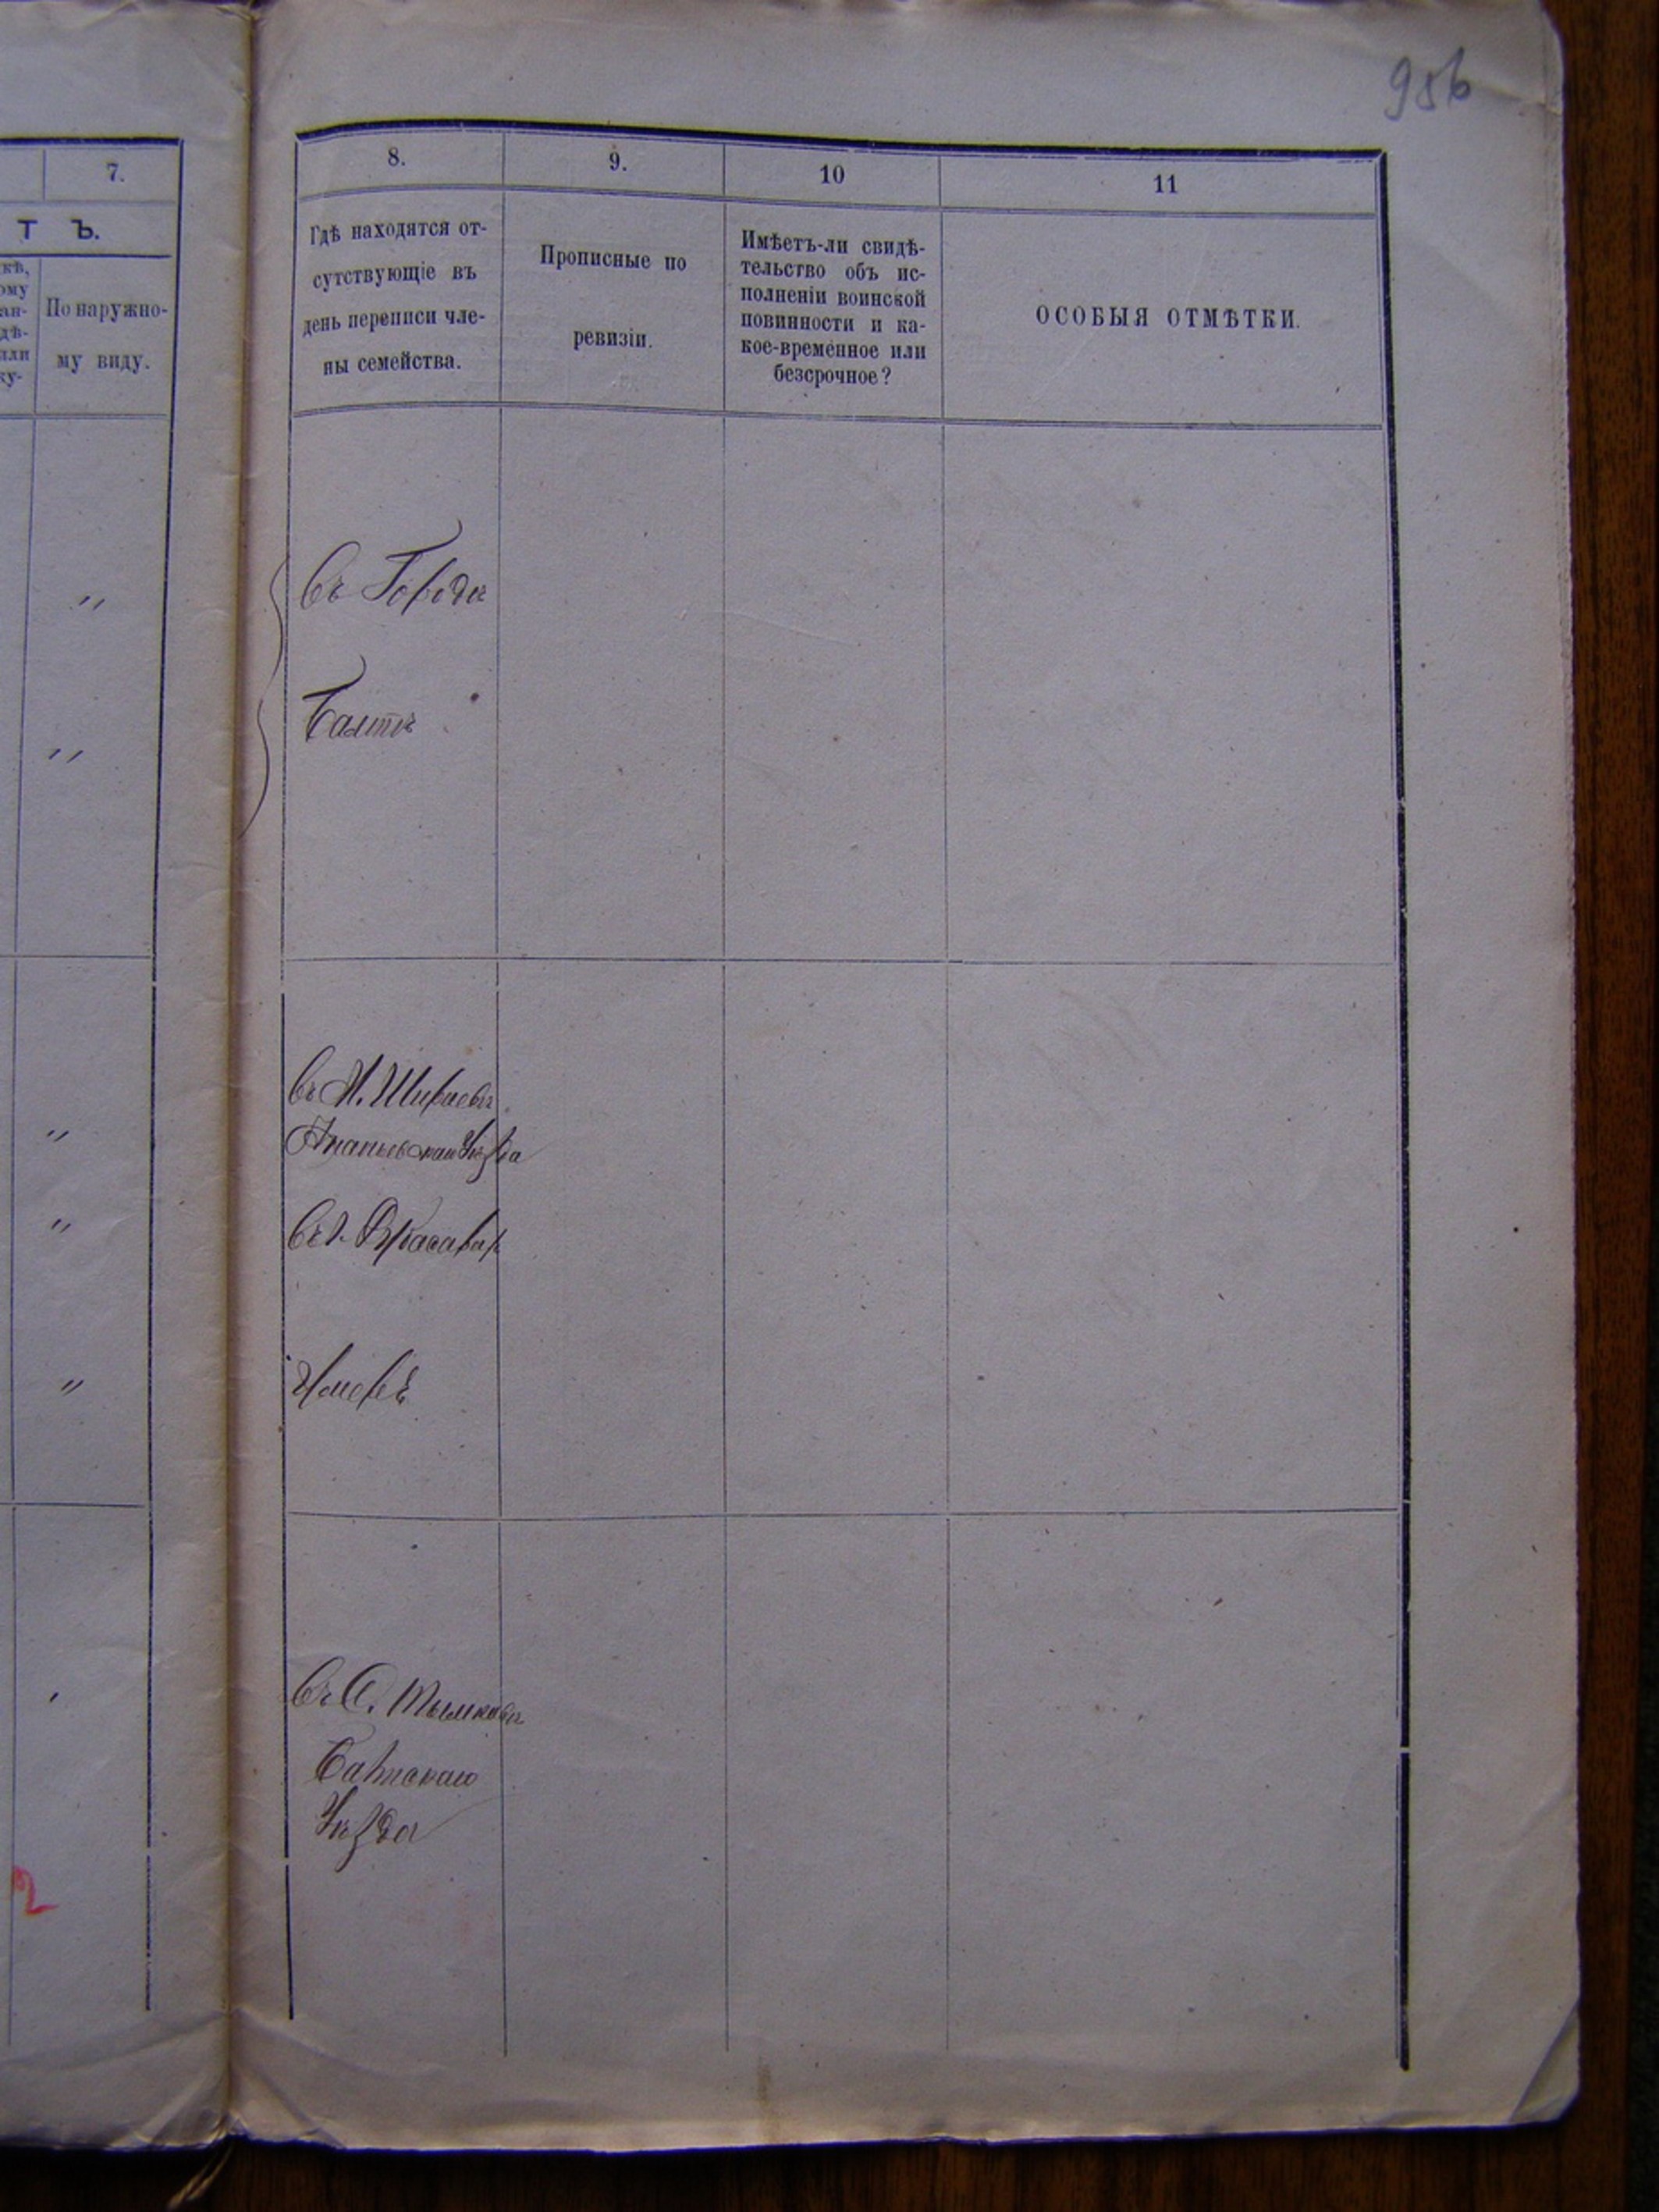 956
7.
8.
9.
10
11
Т Ъ.
кѣ,
ому
ан-
дѣ-
или
ку-
По наружно-
му виду.
Гдѣ находятся от-
сутствующіе въ
день переписи чле-
ны семейства.
Прописные по
ревизіи.
Имѣетъ-ли свидѣ-
тельство объ ис-
полненіи воинской
повинности и ка-
кое-временное или
безсрочное?
ОСОБЫЯ ОТМѢТКИ.
"
Въ Городѣ
"
Балтѣ
Въ М. Ширяевѣ
"
Ананьевскаго Уѣзда
"
Въ
"
Умеръ
Въ С.
Балтскаго
Уѣзда
2